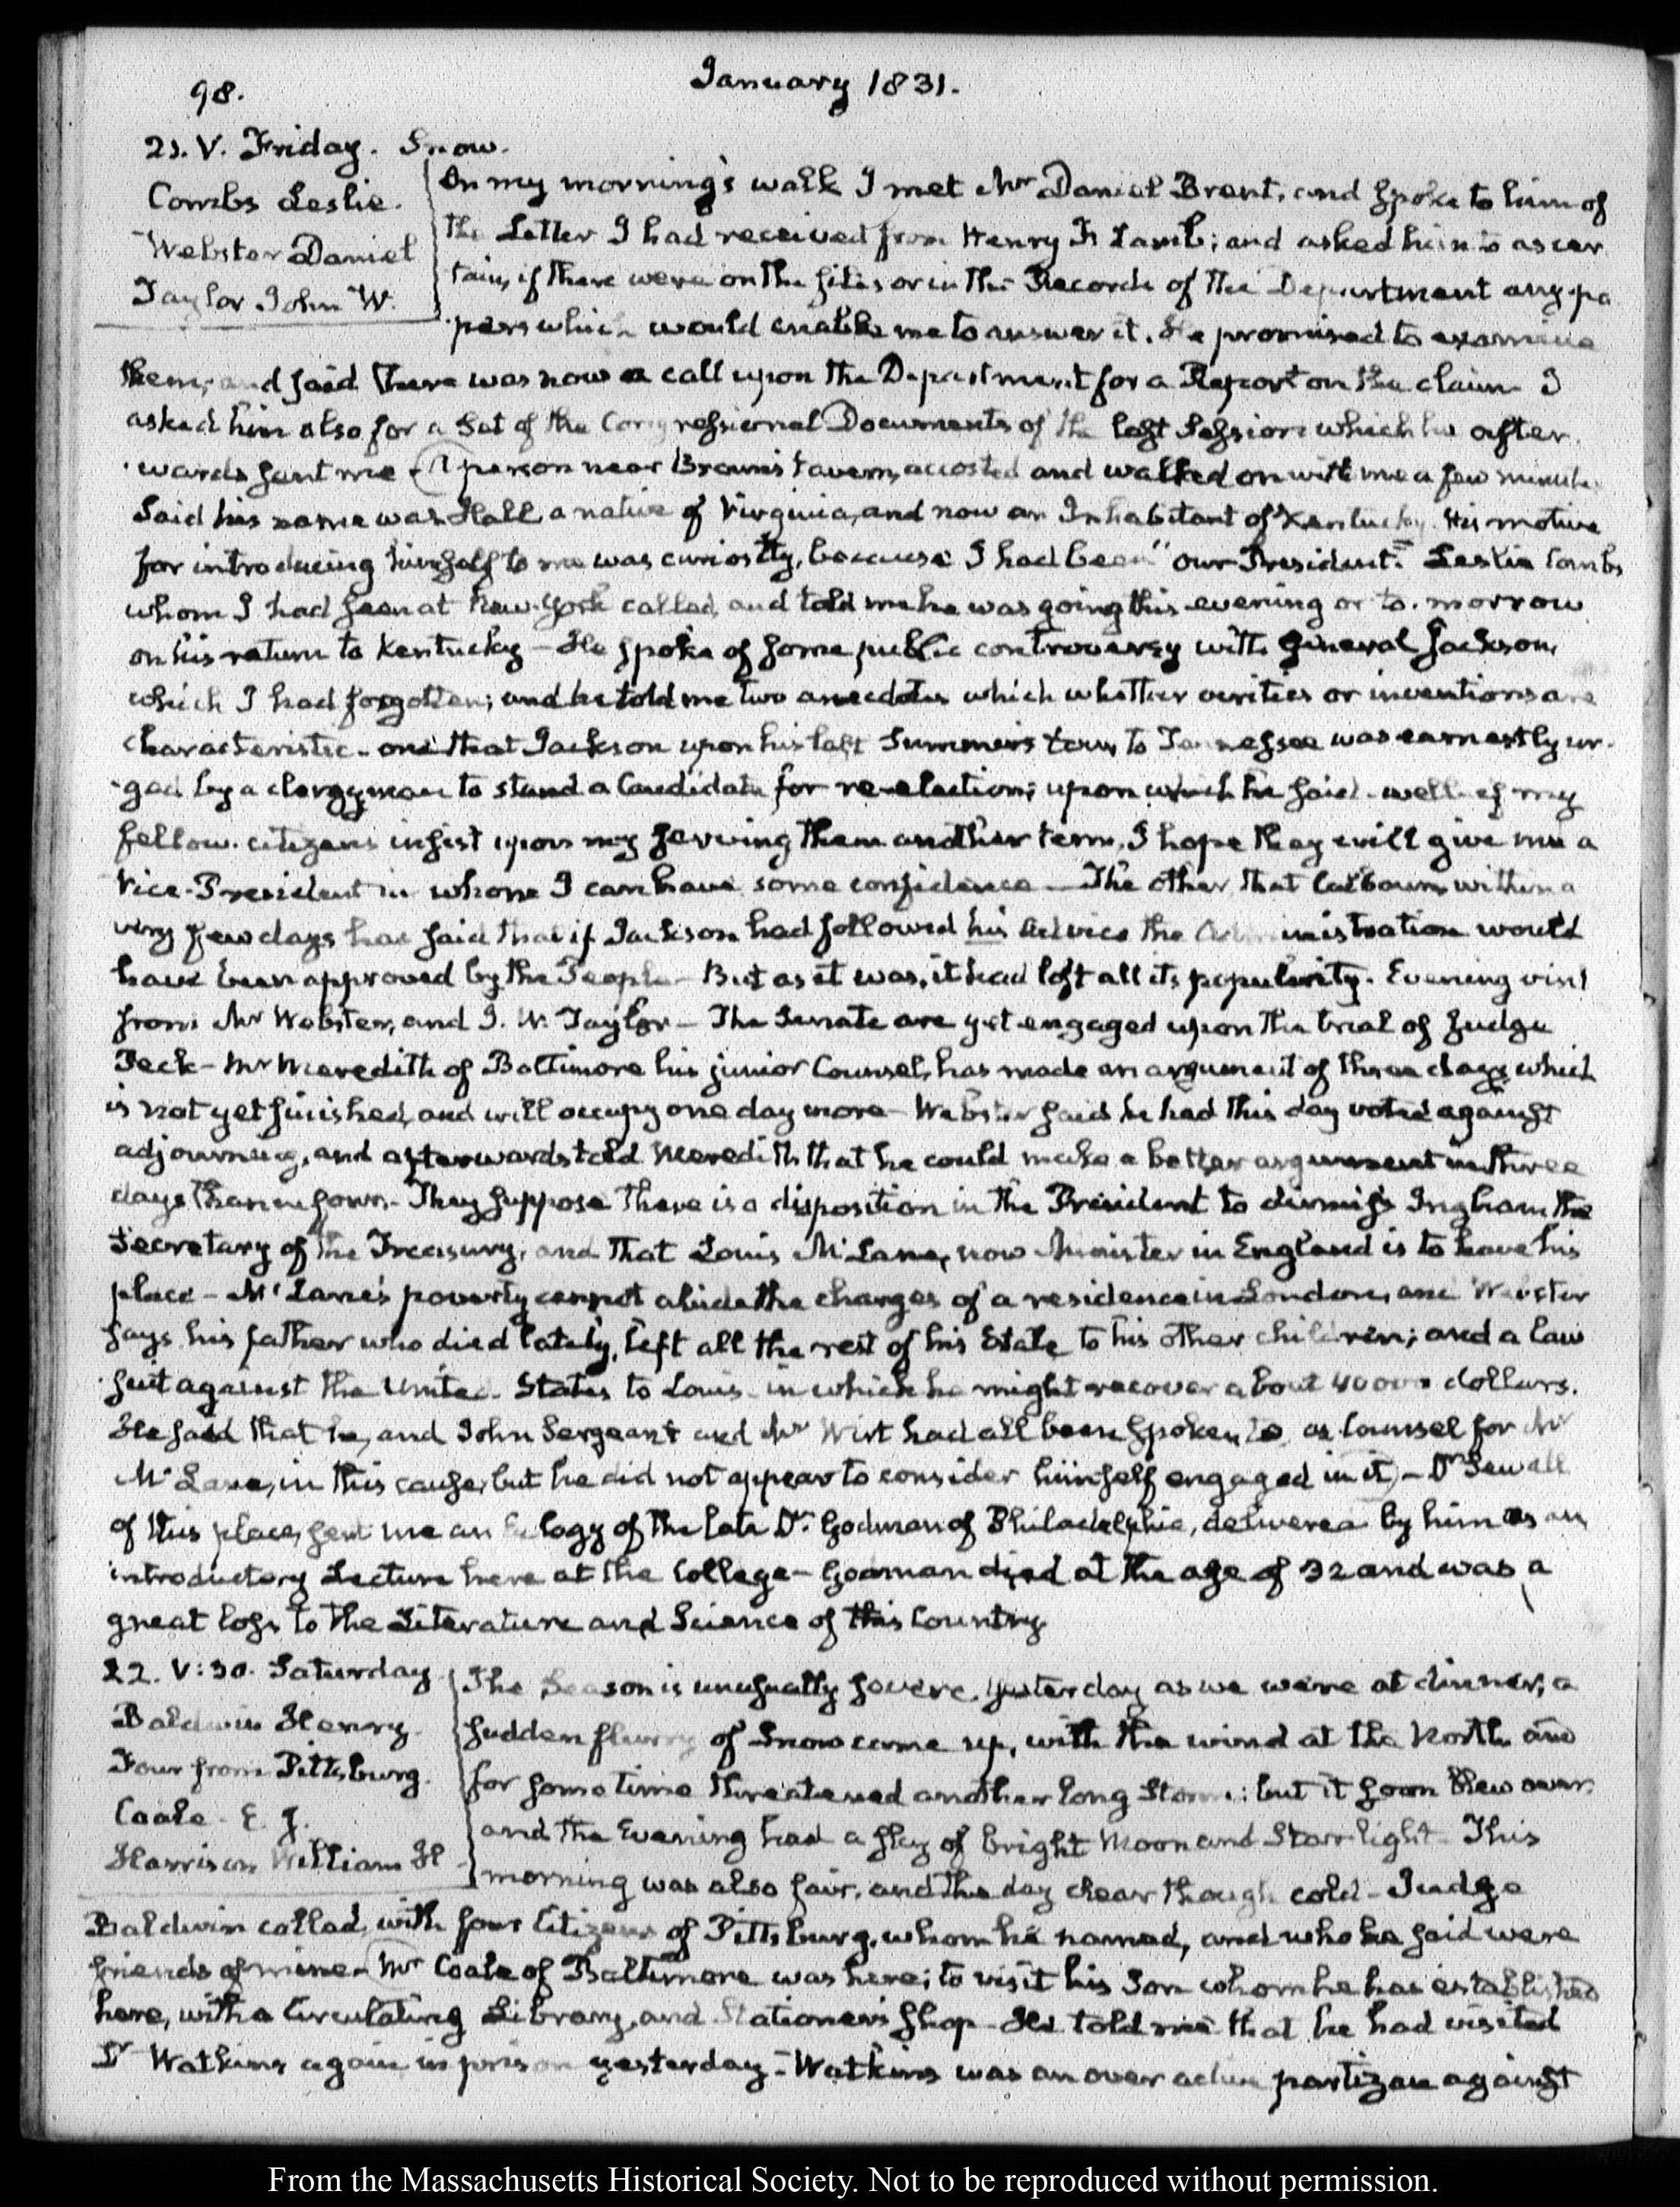 98.
January 1831.
21. V. Friday. Snow.
Combs Leslie.
Webster Daniel
Taylor John W.
On my morning's walk I met Mr Daniel Brent, and spoke to him of
the Letter I had received from Henry Lamb; and asked him to ascer
tain, if there were on the files or in the Records of the Department any pa
pers which would enable me to answer it. He promised to examine
them, and said there was now a call upon the Department for a Report on the claim. I
asked him also for a Set of the Congressional Documents of the last Session which he after.
wards sent me. A person near Brown's tavern, accosted and walked on with me a few minutes
Said his name was Hall a native of Virginia, and now an Inhabitant of Kentucky. His motive
for introducing himself to me was curiosity, because I had been "our President." Leslie Combs
whom I had seen at New-York called, and told me he was going this evening or to-morrow
on his return to Kentucky — He spoke of some public controversy with General Jackson,
which I had forgotten; and he told me two anecdotes which whether verities or inventions are
characteristic — one that Jackson upon his last Summer's tour to Tennessee was earnestly ur-
ged by a clergyman to stand a Candidate for re-election; upon which he said — well — if my
fellow-citizens insist upon my serving them another term, I hope they will give me a
Vice-President in whom I can have some confidence — The other, that Calhoun within a
very few days has said that if Jackson had followed his advice the Administration would
have been approved by the People — But as it was, it had lost all its popularity. Evening visit
from Mr Webster, and J. W. Taylor — The Senate are yet engaged upon the trial of Judge
Peck — Mr Meredith of Baltimore his junior Counsel, has made an argument of three days which
is not yet finished, and will occupy one day more — Webster said he had this day voted against
adjourning, and afterwards told Meredith that he could make a better argument in three
days than in four. — They suppose there is a disposition in the President to dismiss Ingham the
Secretary of the Treasury, and that Louis McLane, now Minister in England is to have his
place — McLane's poverty cannot abide the charges of a residence in London, and Webster
says his father who died lately, left all the rest of his Estate to his other children; and a law
suit against the United States to Louis — in which he might recover about 40000 dollars.
He said that he, and John Sergeant and Mr Wirt had all been spoken to as Counsel for Mr
McLane, in this cause, but he did not appear to consider himself engaged in it, — Dr Sewall
of this place, sent me an Eulogy of the late Dr Godman of Philadelphia, delivered by him as an
introductory Lecture here at the College — Godman died at the age of 32 and was a
great loss to the Literature and Science of this Country.
22. V:30. Saturday
Baldwin Henry.
Four from Pittsburg.
Coale. E. J.
Harrison William H
The Season is unusually severe. Yesterday as we were at dinner, a
sudden flurry of Snow came up, with the wind at the North and
for some time threatened another long Storm: but it soon blew over
and the Evening had a sky of bright Moon and Starlight — This
morning was also fair, and the day clear though cold — Judge
Baldwin called, with four Citizens of Pittsburg, whom he named, and who he said were
friends of mine — Mr Coale of Baltimore was here; to visit his Son whom he has established
here, with a Circulating Library, and Stationer's Shop — He told me that he had visited
Dr Watkins again in prison yesterday — Watkins was an over active partizan against
From the Massachusetts Historical Society. Not to be reproduced without permission.